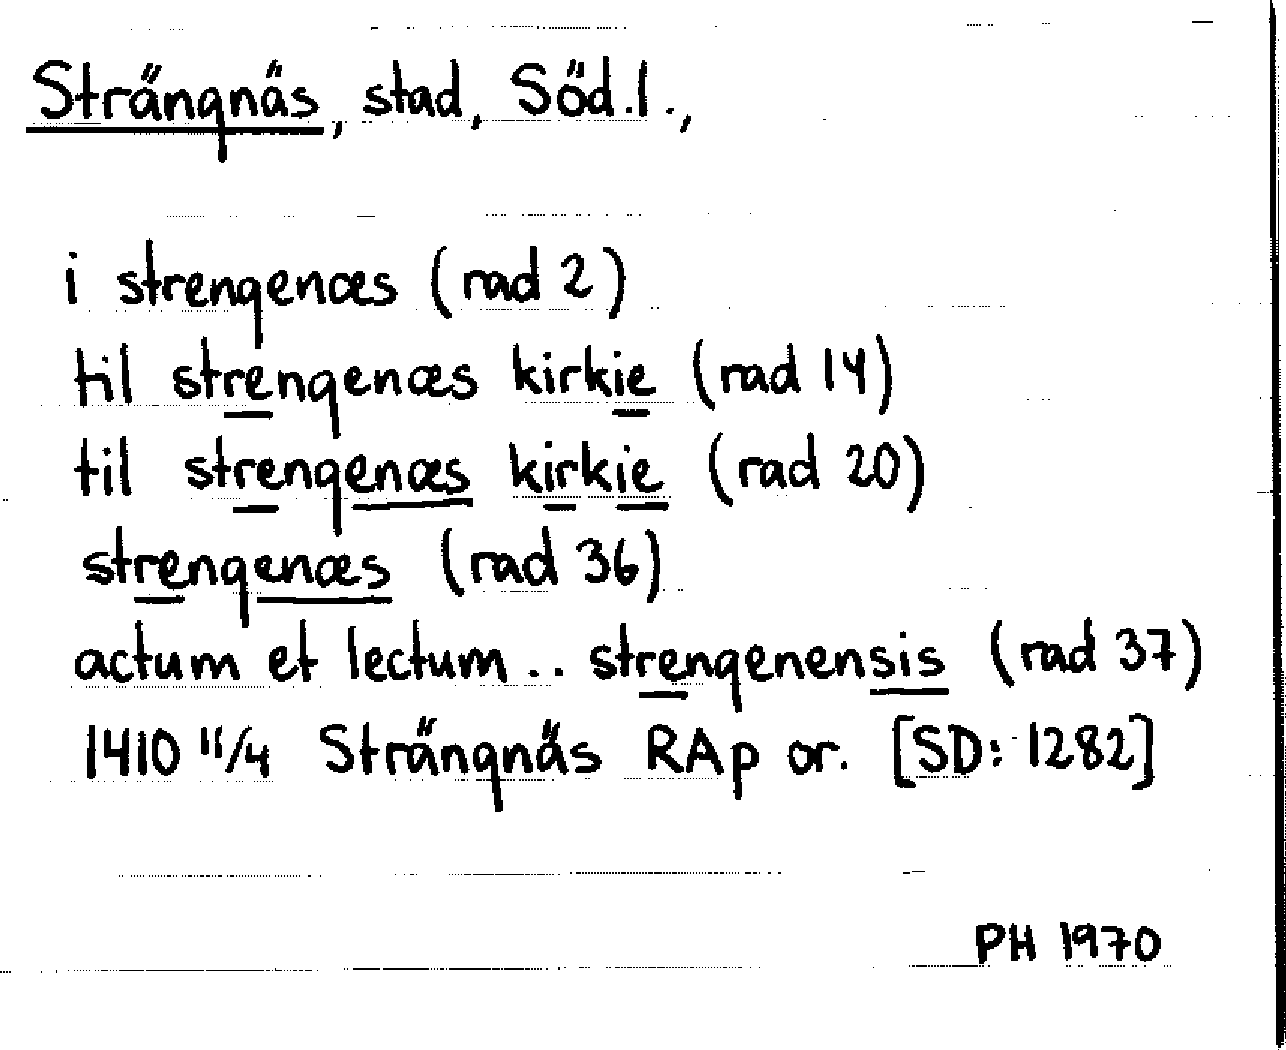 Strängnäs, stad, Söd.l.,
i strengenæs (rad 2)
til strengenæs kirkie (rad 14)
til strengenæs kirkie (rad 20)
strengenæs (rad 36)
actum et lectum .. strengenensis (rad 37)
1410 11/4 Strängnäs RAp or. [SD: 1282]
PH 1970